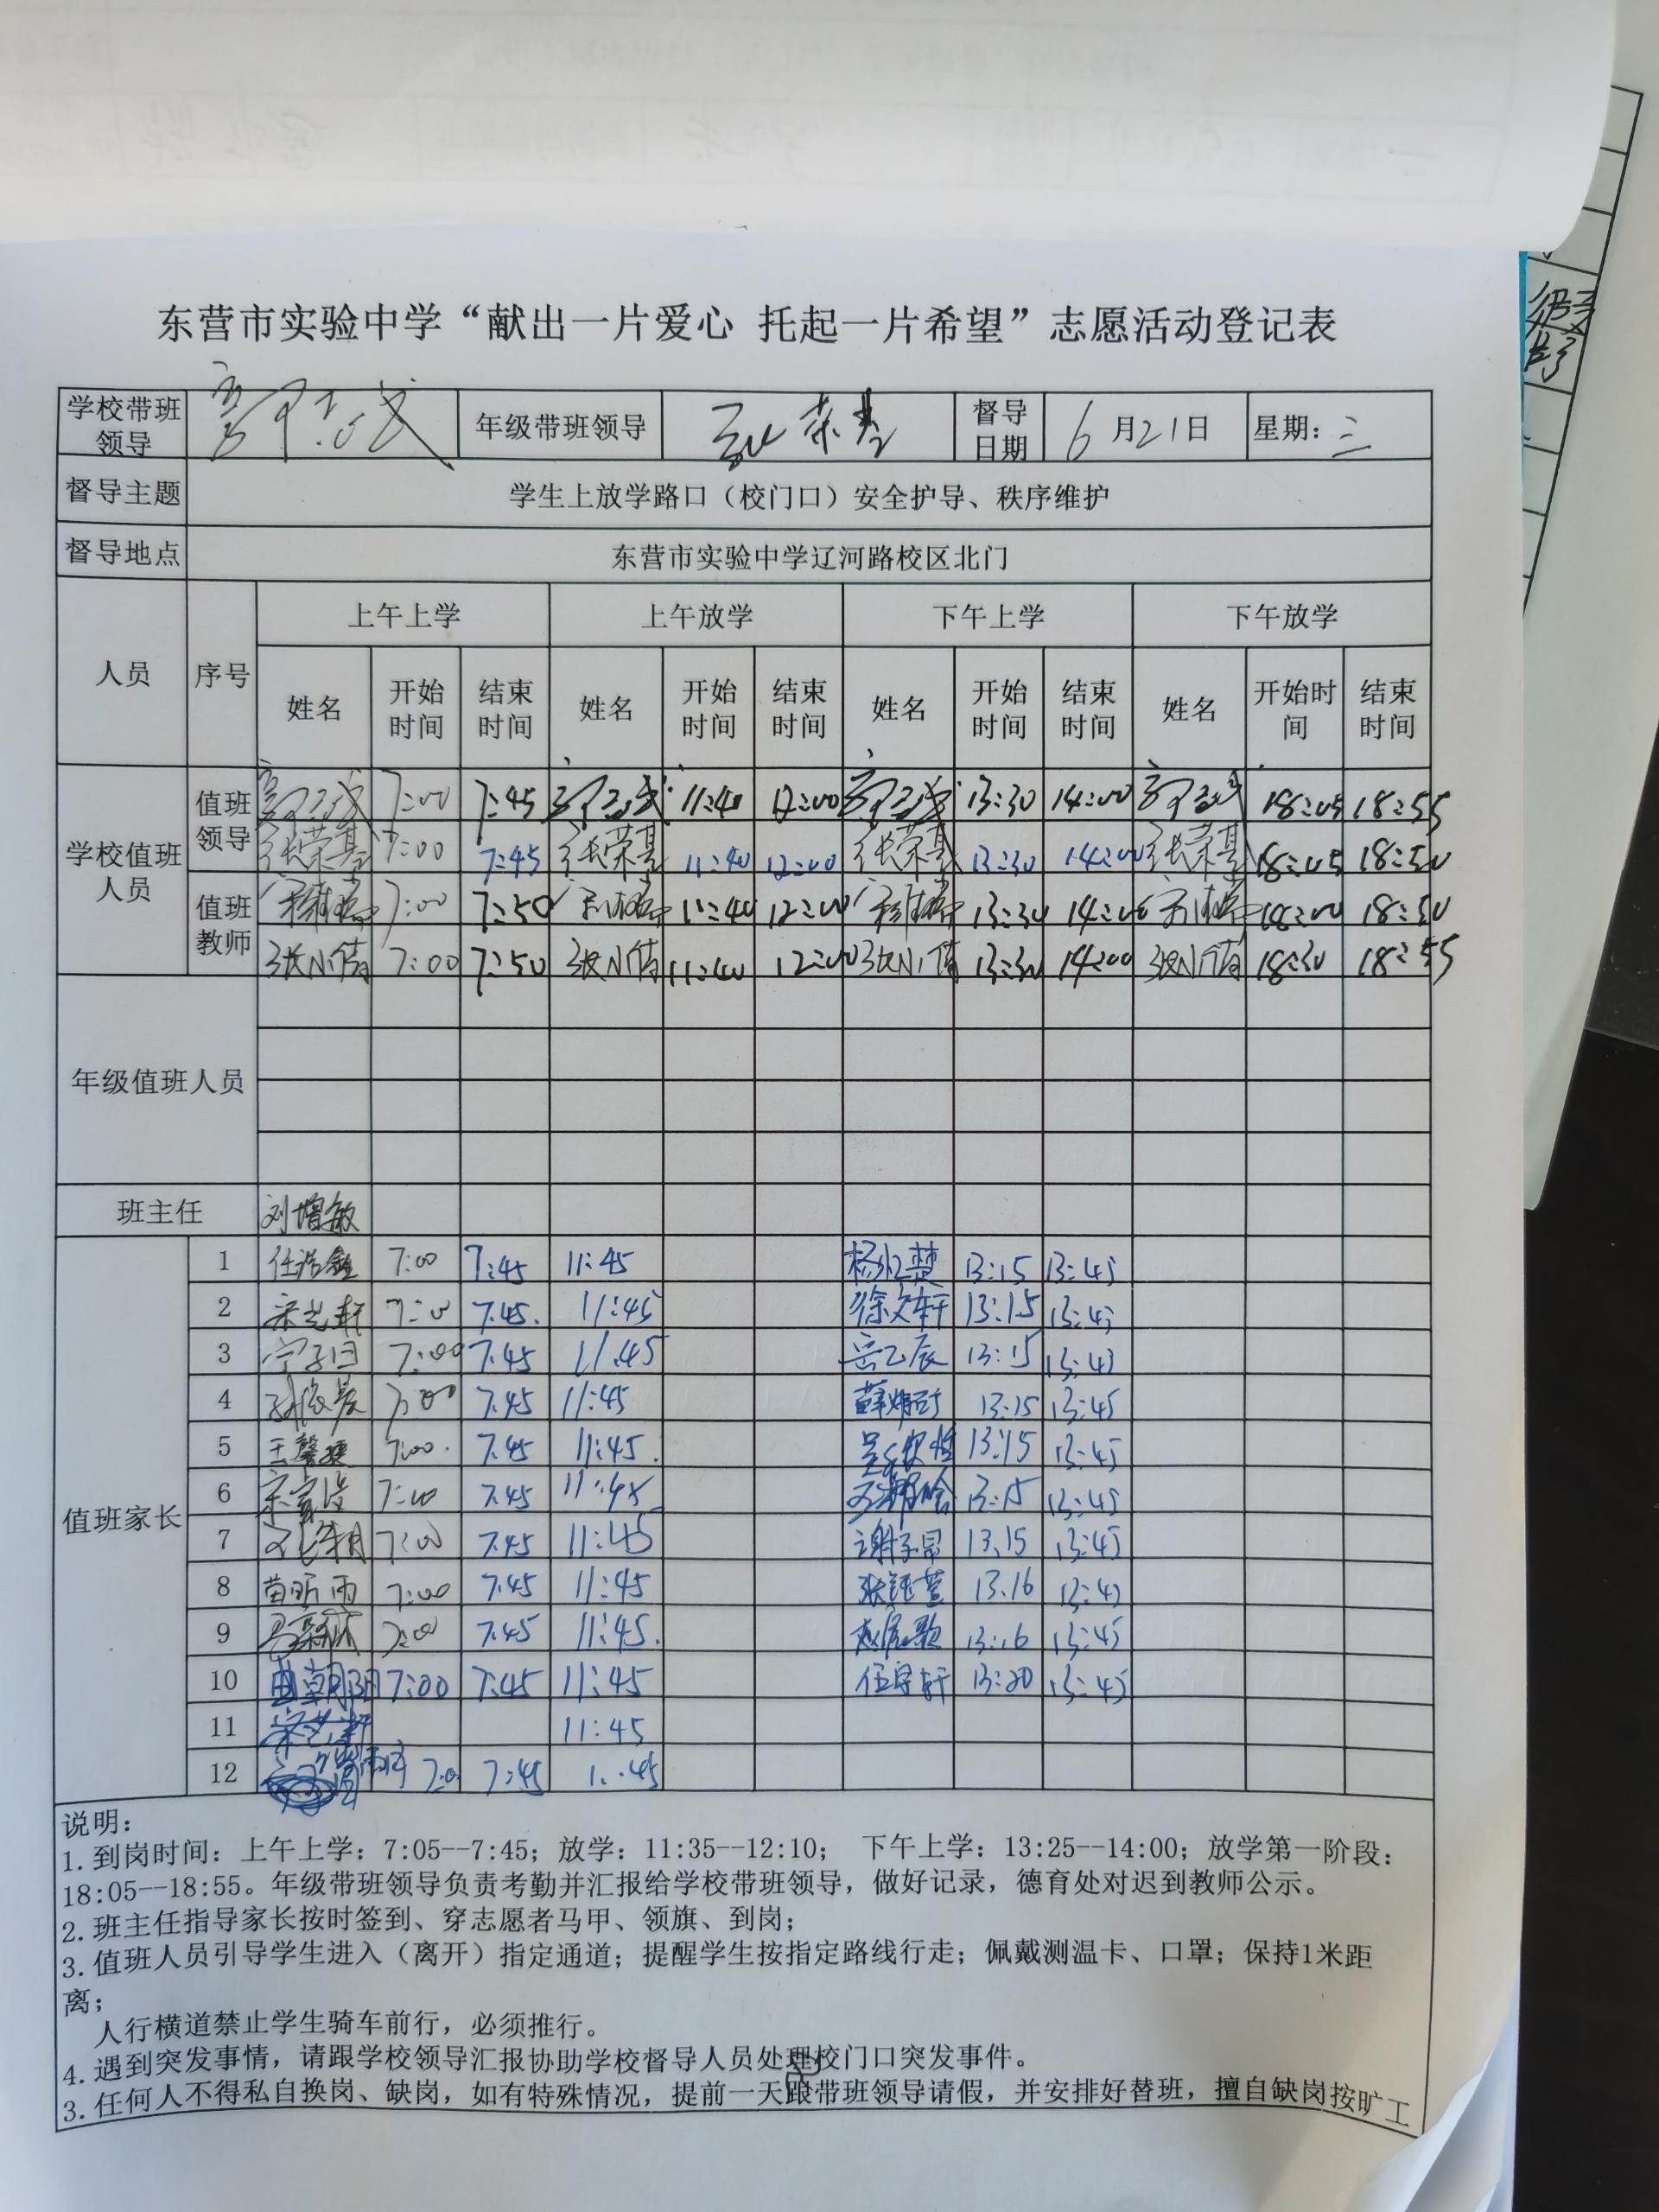 东营市实验中学“献出一片爱心 托起一片希望”志愿活动登记表
学校带班领导 年级带班领导 督导日期 6月21日 星期：三
督导主题 学生上放学路口（校门口）安全护导、秩序维护
督导地点 东营市实验中学辽河路校区北门
人员 序号 上午上学 上午放学 下午上学 下午放学
姓名 开始时间 结束时间 姓名 开始时间 结束时间 姓名 开始时间 结束时间 姓名 开始时间 结束时间
学校值班人员 值班领导 7:00 7:45 11:40 12:00 13:30 14:00 18:05 18:55
张荣基 7:00 7:45 张荣基 11:40 12:00 张荣基 13:30 14:00 张荣基 18:05 18:50
值班教师 7:00 7:50 11:40 12:00 13:30 14:00 18:00 18:30
7:00 7:50 11:40 12:00 13:30 14:00 18:30 18:55
年级值班人员
班主任 刘增敏
值班家长
1 任浩鑫 7:00 7:45 11:45 13:15 13:45
2 宋艺轩 7:00 7.45. 11:45 徐文轩 13:15 13:45
3 7:00 7.45 11.45 岳乙辰 13:15 13:45
4 7:00 7.45 11:45 13:15 13:45
5 7:00. 7.45 11:45. 13:15 13:45
6 7:00 7.45 11:45 13:15 13:45
7 7:00 7.45 11:45 13.15 13:45
8 苗昕雨 7:00 7.45 11:45 13.16 13:45
9 7:00 7.45 11:45. 13:16 13:45
10 曲朝阳 7:00 7:45 11:45 任宇轩 13:20 13:45
11 宋艺轩 11:45
12 7:0 7:45 1:45
说明：
1.到岗时间：上午上学：7:05--7:45；放学：11:35--12:10； 下午上学：13:25--14:00；放学第一阶段：
18:05--18:55。年级带班领导负责考勤并汇报给学校带班领导，做好记录，德育处对迟到教师公示。
2.班主任指导家长按时签到、穿志愿者马甲、领旗、到岗；
3.值班人员引导学生进入（离开）指定通道；提醒学生按指定路线行走；佩戴测温卡、口罩；保持1米距
离；
人行横道禁止学生骑车前行，必须推行。
4.遇到突发事情，请跟学校领导汇报协助学校督导人员处理校门口突发事件。
3.任何人不得私自换岗、缺岗，如有特殊情况，提前一天跟带班领导请假，并安排好替班，擅自缺岗按旷工